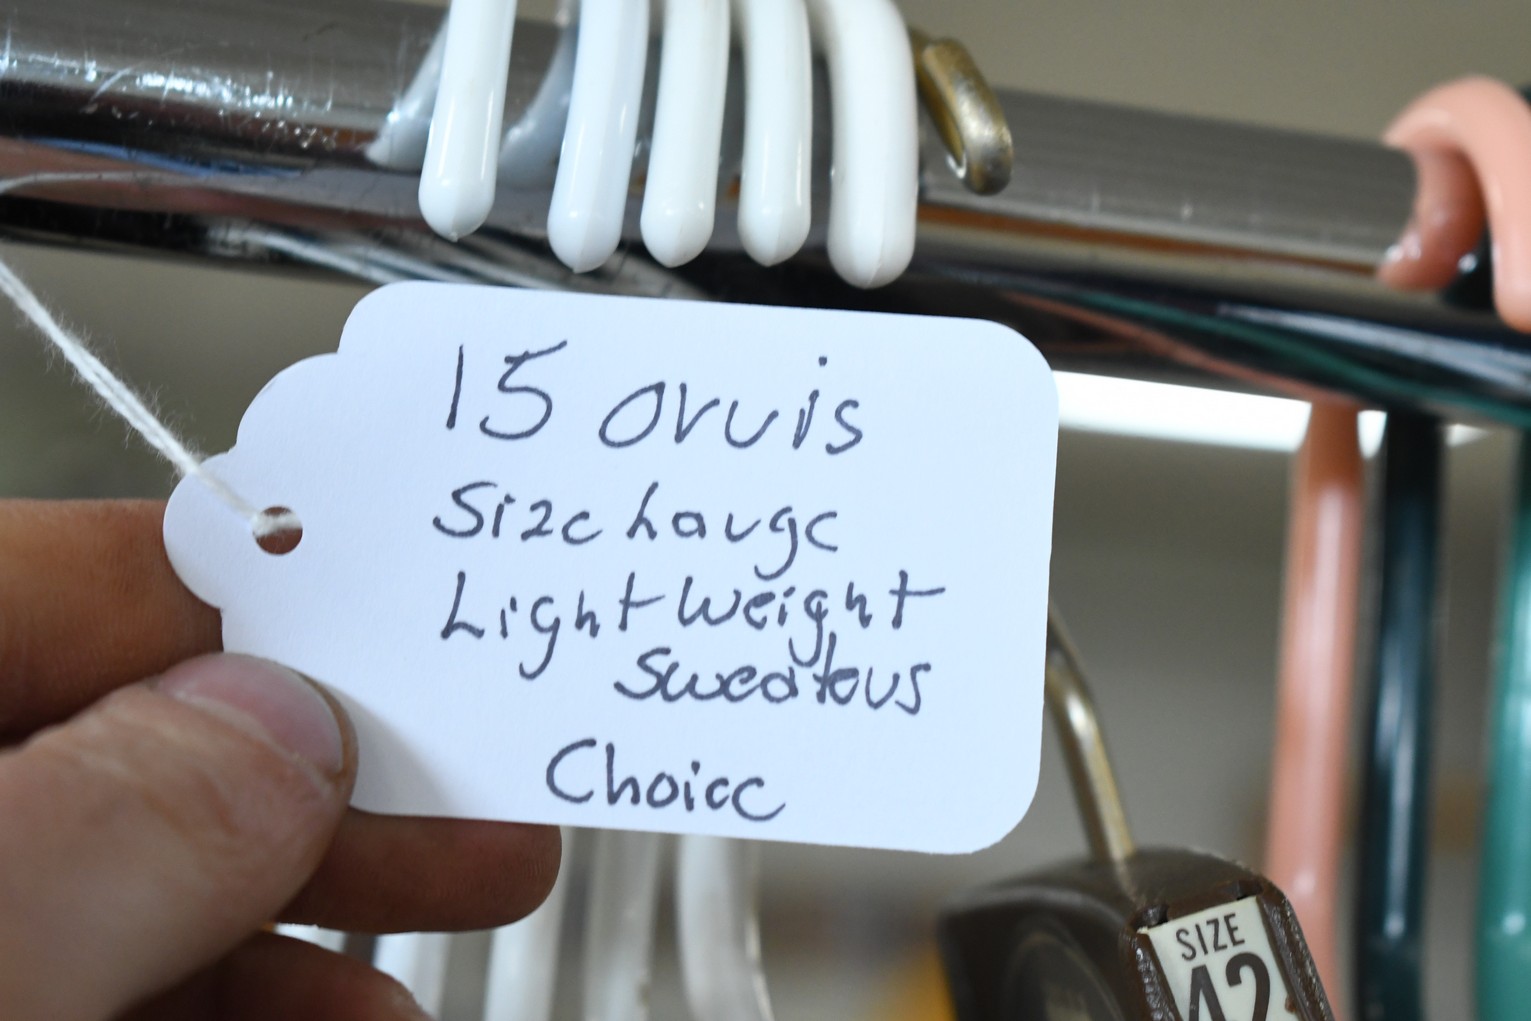 15 ovuis
Size Lauge
Light Weight
Sweatous
Choice
SIZE
42